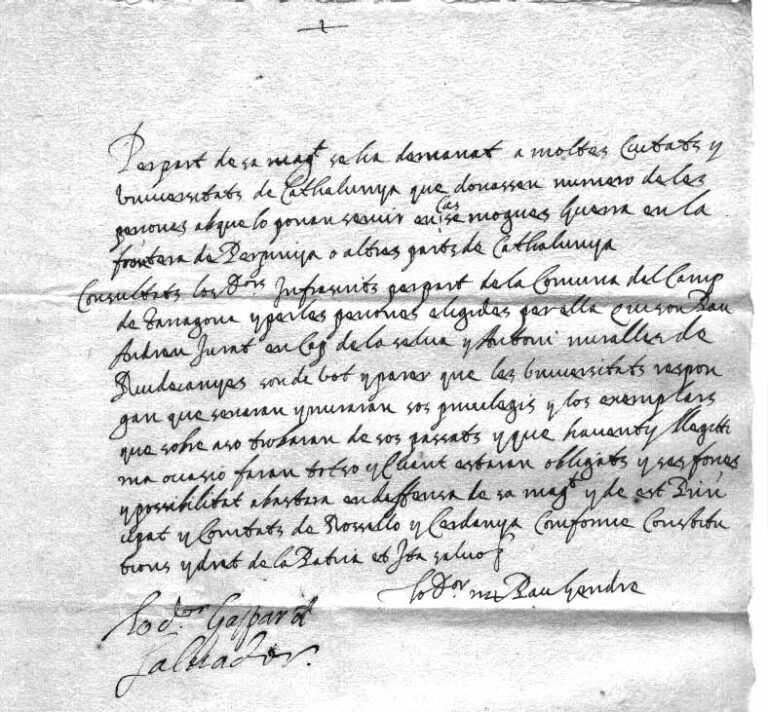 Per part de sa magt se ha demanat a moltes Ciutats y
Universitats de Cathalunya que donassen numero de les
persones ab que lo poran servir en cas se mogues guerra en la
frontera de Perpinya o altres parts de Cathalunya
Consultats los Dors Infrascrits per part de la Comuna del Camp
de Tarragona y per les persones elegides per ella qui son Pau
Andreu Jurat en Cap de la selva y Antoni miralles de
Riudecanyes son de vot y parer que les Universitats respon
gan que serraran y miraran sos privilegis y los exemplars
que sobre aso trobaran de sos passats y que havent y llegitti
ma ocasio faran tot so y quant estaran obligats y ses forses
y possibilitat abastara en deffensa de sa magt y de est Prin
cipat y Comtats de Rossello y Cerdanya Conforme Constitu
tions y dret de la Patria et Ita salvo
lo Dor Pau Gendre
lo dor Gaspar
Salvador.